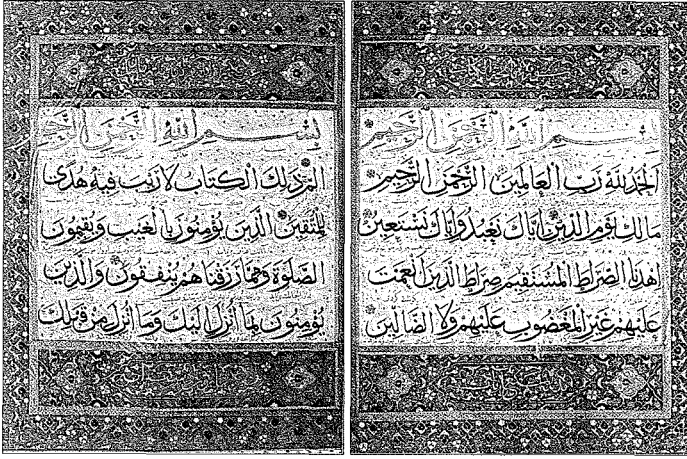 بسم الله الرحمن الرحيم
الحمد لله رب العالمين الرحمن الرحيم
مالك يوم الدين إياك نعبد وإياك نستعين
اهدنا الصراط المستقيم صراط الذين أنعمت
عليهم غير المغضوب عليهم ولا الضالين
بسم الله الرحمن الرحيم
الم ذلك الكتاب لا ريب فيه هدى
للمتقين الذين يؤمنون بالغيب ويقيمون
الصلوة ومما رزقناهم ينفقون والذين
يؤمنون بما أنزل إليك وما أنزل من قبلك